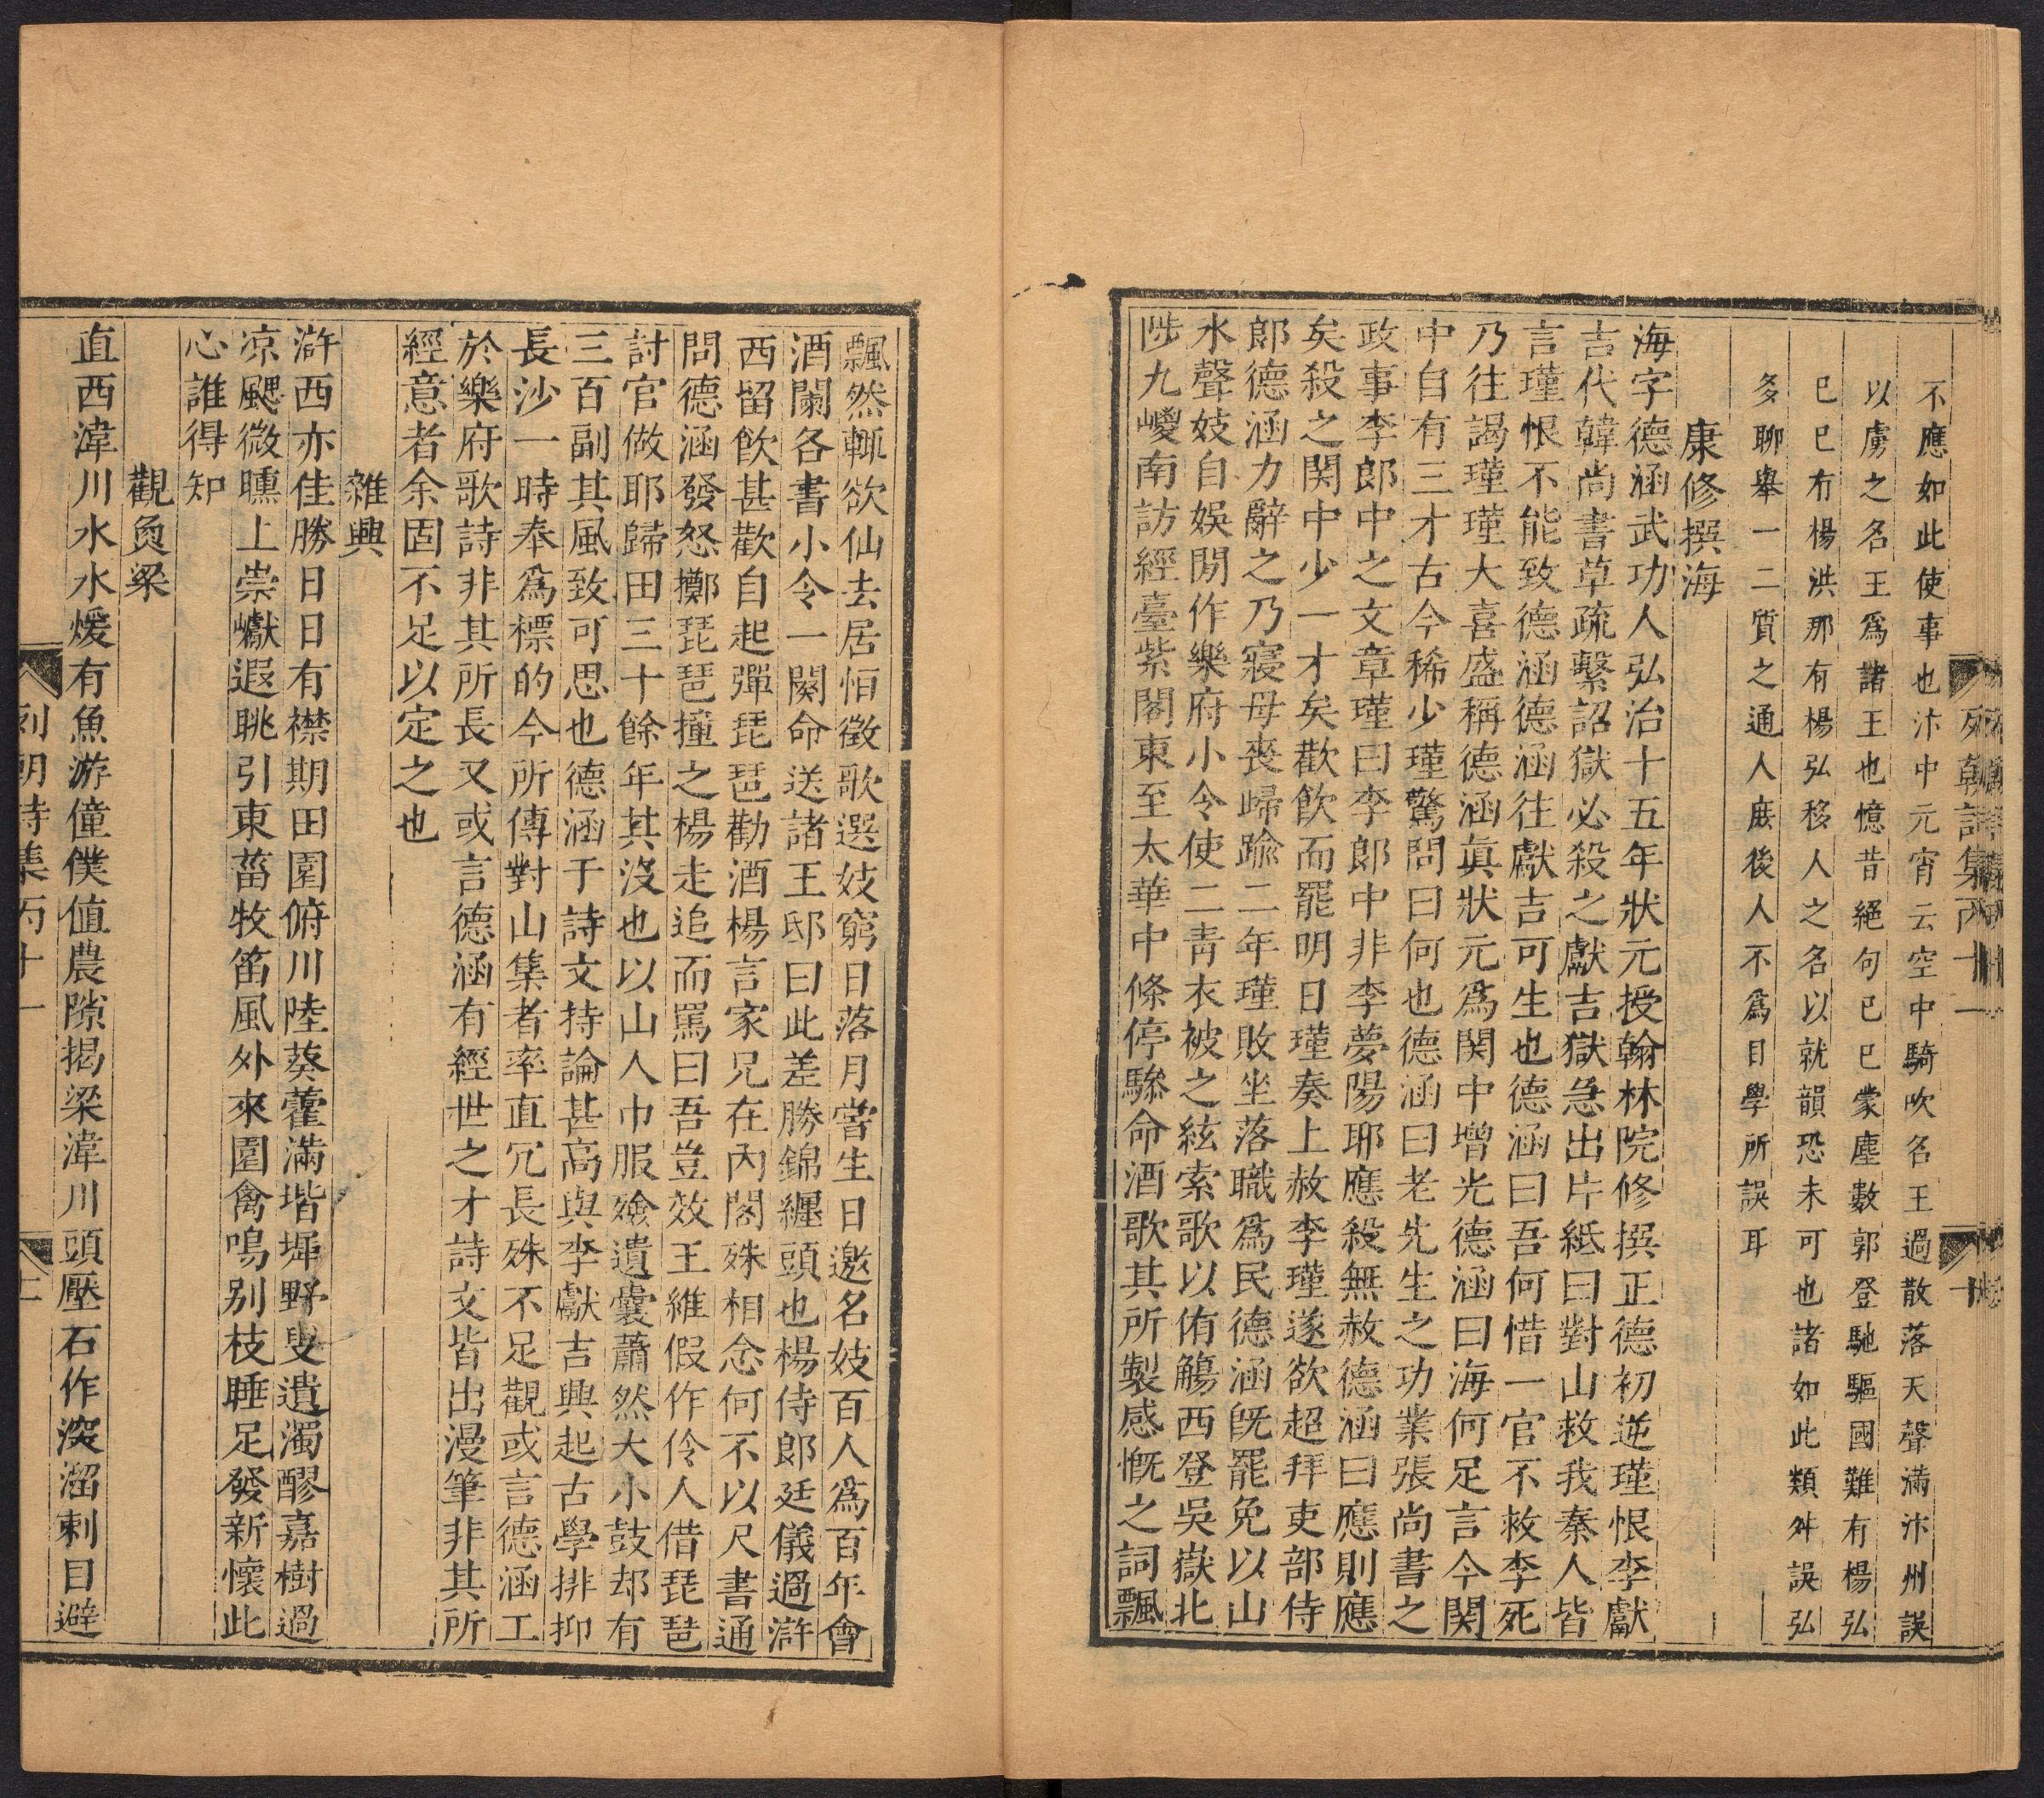 列朝詩集丙十一
十
不應如此使事也汴中元宵云空中騎吹名王過散落天聲滿汴州誤
以虜之名王爲諸王也憶昔絕句已巳蒙塵數郭登馳驅國難有楊弘
已巳有楊洪那有楊弘移人之名以就韻恐未可也諸如此類舛誤弘
多聊舉一二質之通人庶後人不爲目學所誤耳
康修撰海
海字德涵武功人弘治十五年狀元授翰林院修撰正德初逆瑾恨李獻
吉代韓尚書草疏繫詔獄必殺之獻吉獄急出片紙曰對山救我秦人皆
言瑾恨不能致德涵德涵往獻吉可生也德涵曰吾何惜一官不救李死
乃往謁瑾瑾大喜盛稱德涵眞狀元爲関中增光德涵曰海何足言今関
中自有三才古今稀少瑾驚問曰何也德涵曰老先生之功業張尚書之
政事李郎中之文章瑾曰李郎中非李夢陽耶應殺無赦德涵曰應則應
矣殺之関中少一才矣歡飲而罷明日瑾奏上赦李瑾遂欲超拜吏部侍
郎德涵力辭之乃寢母喪歸踰二年瑾敗坐落職爲民德涵旣罷免以山
水聲妓自娛閒作樂府小令使二靑衣被之絃索歌以侑觴西登吳嶽北
陟九嵕南訪經臺紫閣東至太華中條停驂命酒歌其所製感慨之詞飄
飄然輒欲仙去居恒徵歌選妓窮日落月嘗生日邀名妓百人爲百年會
酒闌各書小令一闋命送諸王邸曰此差勝錦纏頭也楊侍郎廷儀過滸
西留飲甚歡自起彈琵琶勸酒楊言家兄在內閣殊相念何不以尺書通
問德涵發怒擲琵琶撞之楊走追而罵曰吾豈效王維假作伶人借琵琶
討官做耶歸田三十餘年其沒也以山人巾服殮遺囊蕭然大小鼓却有
三百副其風致可思也德涵于詩文持論甚高與李獻吉興起古學排抑
長沙一時奉爲標的今所傳對山集者率直冗長殊不足觀或言德涵工
於樂府歌詩非其所長又或言德涵有經世之才詩文皆出漫筆非其所
經意者余固不足以定之也
雜興
滸西亦佳勝日日有襟期田園俯川陸葵藿滿堦墀野叟遺濁醪嘉樹過
凉颸微曛上崇巘遐眺引東菑牧笛風外來園禽鳴别枝睡足發新懷此
心誰得知
觀負梁
直西湋川水水煖有魚游僮僕値農隙揭梁湋川頭壓石作湥溜剌目避
列朝詩集丙十一